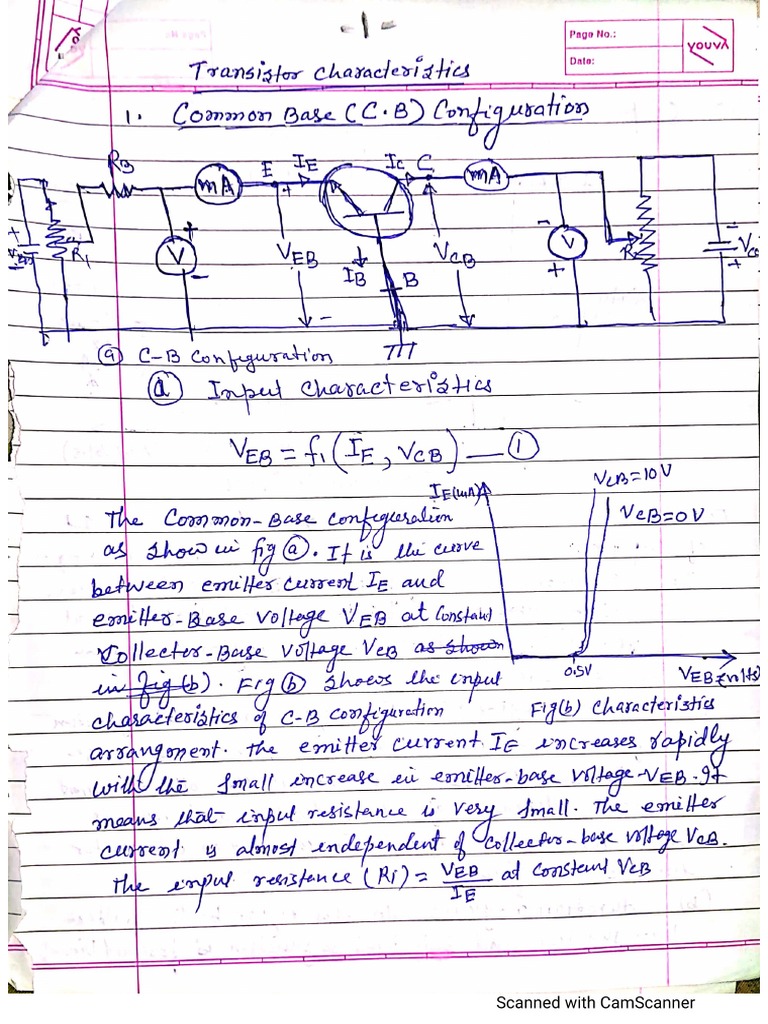 -1-
Page No.:
Date:
YOUVA
Transistor Characteristics
1. Common Base (C.B) Configuration
RB
mA
E
IE
+
Ic
C
mA
+
R1
V
+
-
VEB
-
IB
B
VCB
-
V
+
R
-
+
(a) C-B Configuration
(a) Input Characteristics
VEB = f1 (IE, VCB) — (1)
IE(mA)
VCB=10V
VCB=0V
0.5V
Fig(b) Characteristics
The Common-Base configuration
as show in fig (a). It is the curve
between emitter current IE and
emitter-Base voltage VEB at Constant
Collector-Base voltage VCB as shown
in fig(b). Fig(b) shows the input
characteristics of C-B configuration
arrangement. The emitter current IE increases rapidly
with the small increase in emitter-base voltage VEB. It
means that input resistance is very small. The emitter
current is almost independent of collector-base voltage VCB.
The input resistance (Ri) = VEB/IE at constant VCB
Scanned with CamScanner